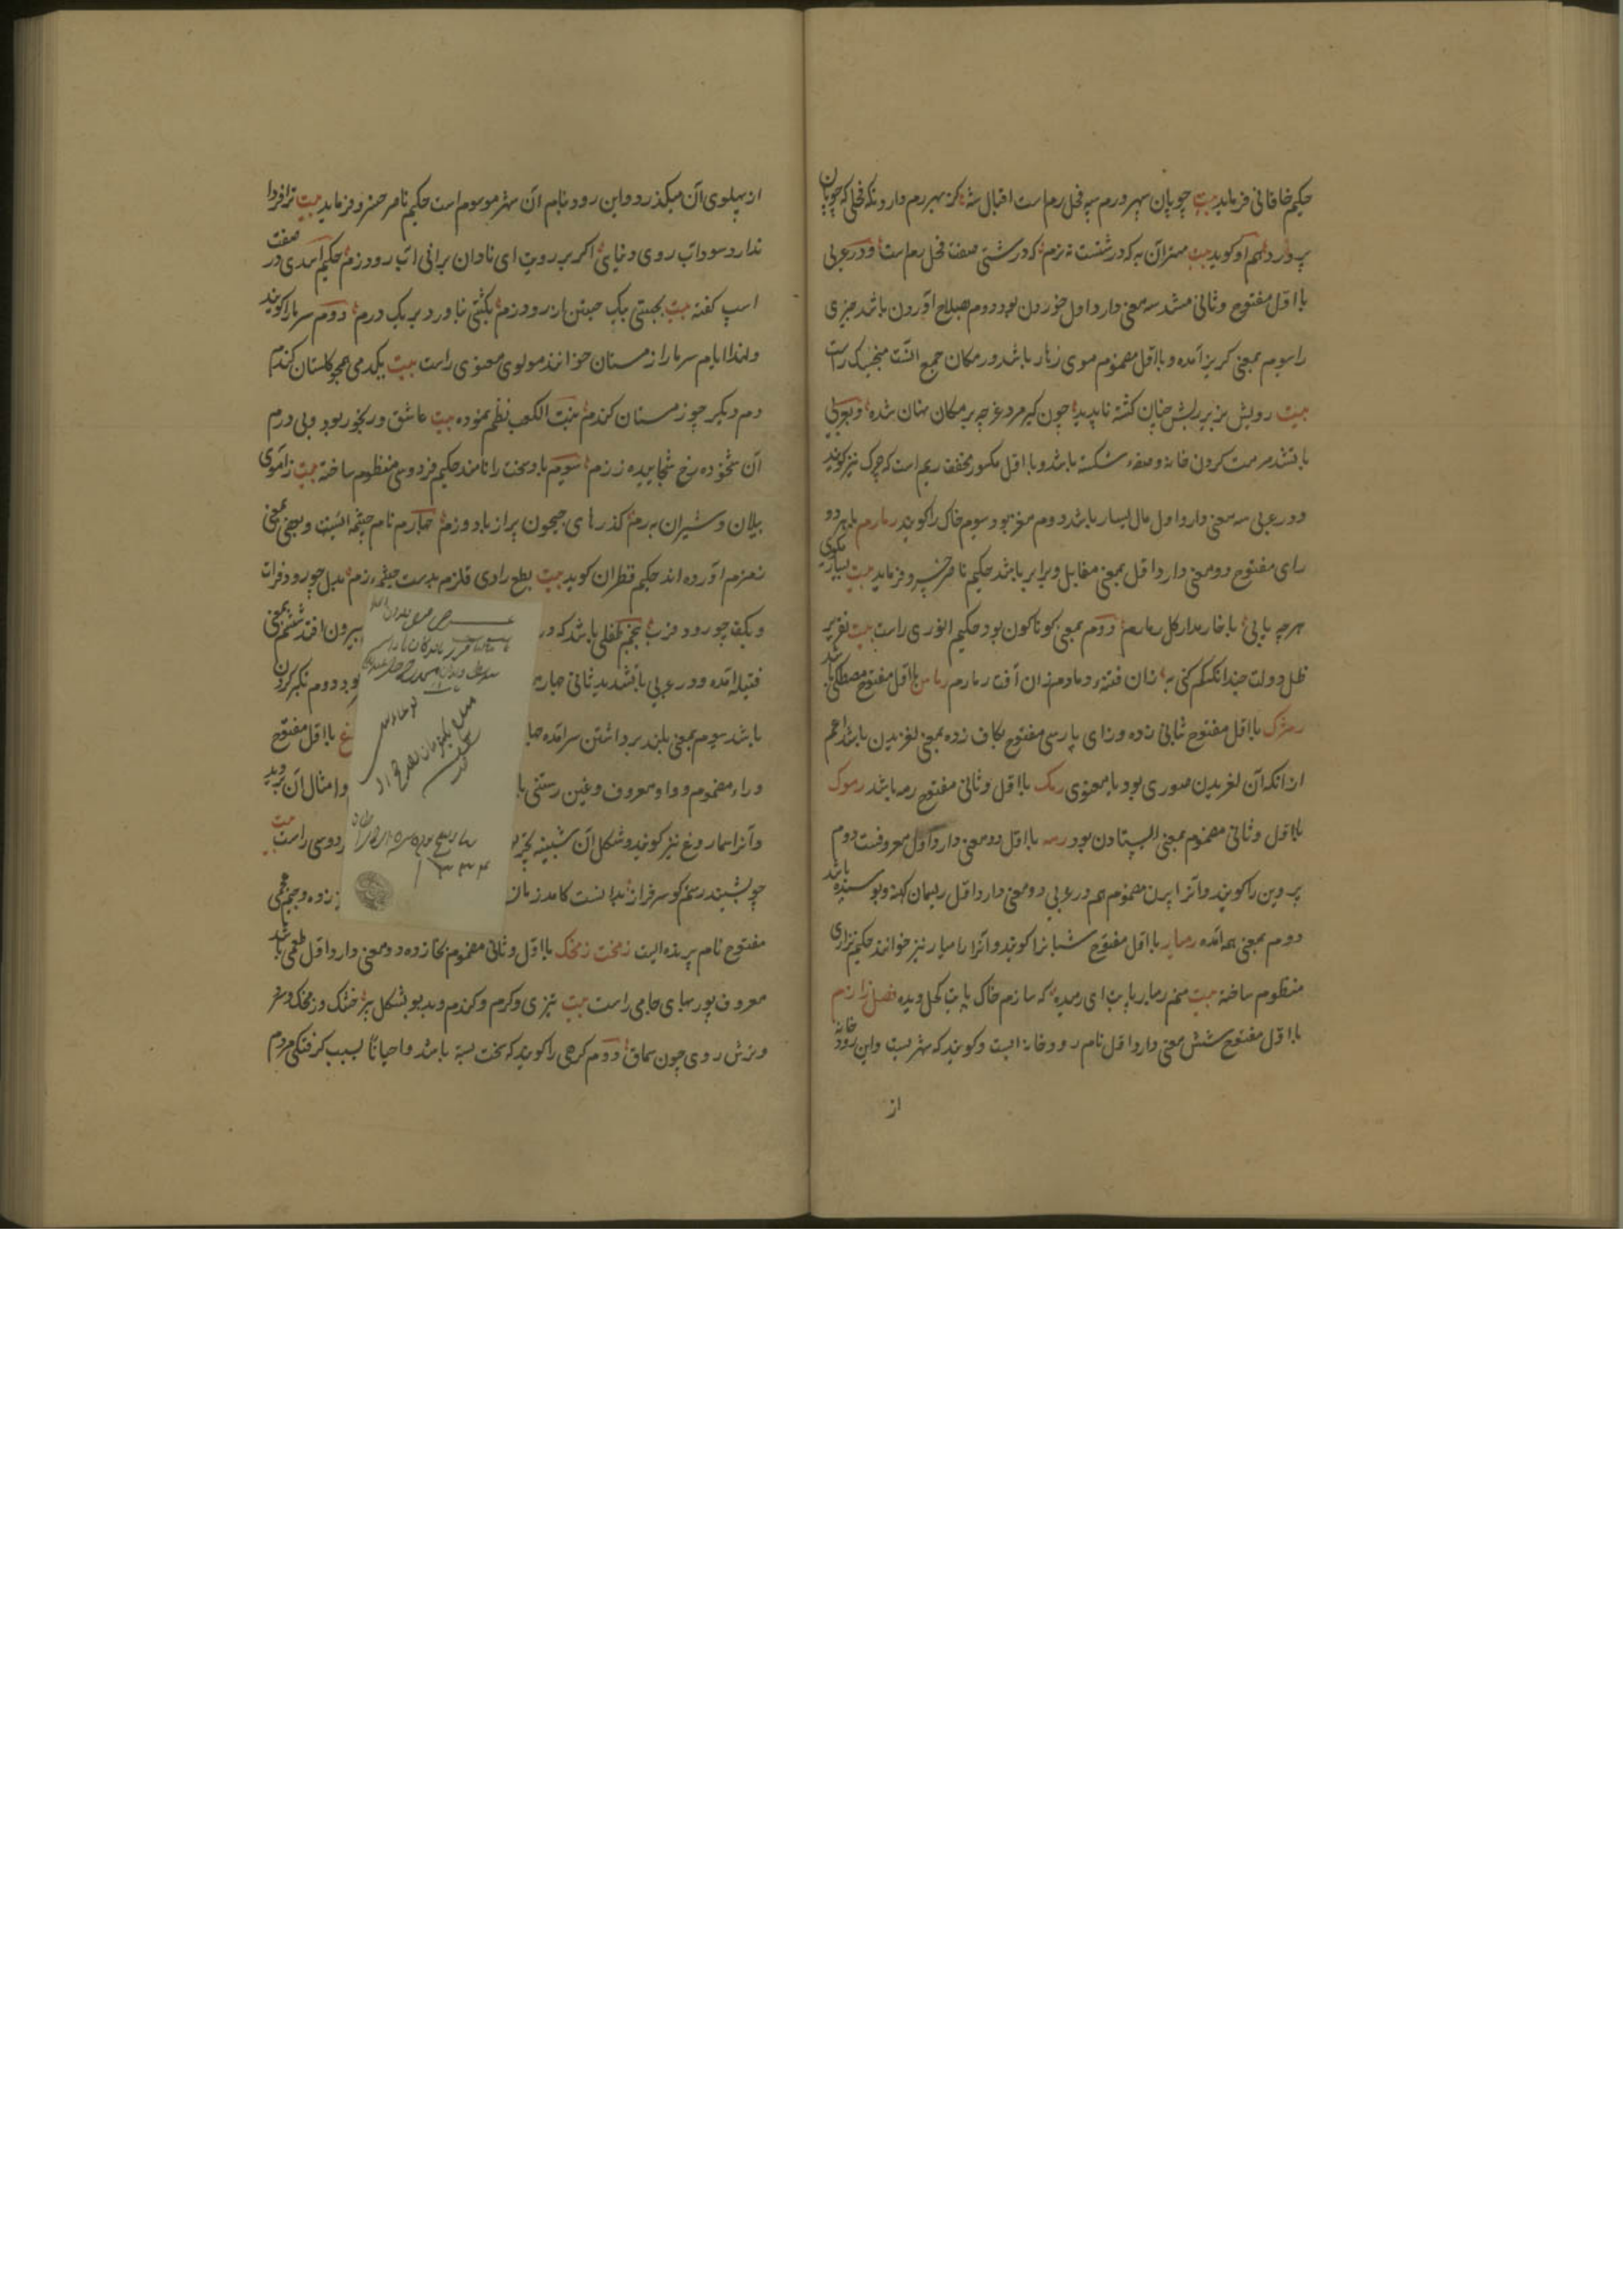 حکیم خاقانی فرماید بیت چوپان سپهر و رم سپه فحل رم است اقبال شه کز سپهر رم دارد نکه فحلی که چوپان
پرورد هم او کوید بیت مهتر آن به که درشتست نه نرم که درشتی صفت فحل رم است و در عربی
با اول مفتوح و ثانی مشدد سه معنی دارد اول خوردن بود دوم بصلاح آوردن باشد چیزی
را سوم بمعنی کریز آمده و با اول مضموم موی زهار باشد و رمکان جمع آنست منجیک راست
بیت رویش بزیر ریش چنان کشته ناپدید چون کیر مرد غرچه بر مکان نهان شده و بعربی
با تشدید مرمت کردن خانه و شکسته باشد و با اول مکسور مخفف ریم است که چرک نیز کویند
و در عربی سه معنی دارد اول مال بسیار باشد دوم مغز بود سوم خاک را کویند رمارم با هر دو
رای مفتوح دو معنی دارد اول بمعنی مقابل و برابر باشد حکیم ناصر خسرو فرماید بیت بسیار مکوی
هرچه یابی با خار مدار کل رمارم دوم بمعنی کوناکون بود حکیم انوری راست بیت تقریر
ظل دولت چندانکه کم کنی به زان فتنه دمادم زان آفت رمارم رماس با اول مفتوح مصطکی باشد
رمژک با اول مفتوح ثانی زده و زای پارسی مفتوح بکاف زده بمعنی لغزیدن باشد اعم
از آنکه آن لغزیدن صوری بود یا معنوی رمک با اول و ثانی مفتوح رمه باشد رموک
با اول و ثانی مضموم بمعنی ایستادن بود رمه با اول دو معنی دارد اول معروفست دوم
پروین را کویند و آنرا پرن مضموم هم در عربی دو معنی دارد اول ریسمان کهنه و پوسیده باشد
دوم بمعنی همه آمده رمیار با اول مفتوح شبانرا کویند و آنرا رامیار نیز خوانند حکیم نزاری
منظوم ساخته بیت منم رمیار پا ای رمیده که سازم خاک پایت کحل دیده فصل زا زم
با اول مفتوح شش معنی دارد اول نام رودخانه ایست و کویند که شهریست و این رود خانه
از
از پهلوی آن میکذرد و این رود بنام آن شهر موسوم است حکیم ناصر خسرو فرماید بیت ترا فردا
ندارد سود آب روی دنیایی اکر بر رویت ای نادان برانی آب رود زم حکیم اسدی در صفت
اسپ کفته بیت بجستی بیک جستن از رود زم بکشتی بناورد بر یک درم دوم سرما را کویند
و لهذا ایام سرما را زمستان خوانند مولوی معنوی راست بیت یکدمی همچو کلستان کندم
دم دیکر چو زمستان کندم بنت الکعب نظم نموده بیت عاشق و رنجور بود و بی درم
آن شخوده رخ شجاییده ز زم سوم باد سخت را نامند حکیم فردوسی منظوم ساخته بیت ز آموی
پیلان و شیران به رم کذرهای جیحون پر از باد و زم چهارم نام چشمه ایست و بعضی بمعنی
زمزم آورده اند حکیم قطران کوید بیت بطبع رادی قلزم بدست چشمه زم بدل چو رود فرات
و بکف چو رود فرب پنجم طفلی باشد که در
بیرون افتد ششم بمعنی
فتیله آمده و در عربی با تشدید ثانی چهار م
بود دوم تکبر کردن
باشد سوم بمعنی بلند برداشتن سر آمده
غ با اول مفتوح
و راء مضموم و واو معروف و غین رستنی با
و امثال آن بروید
و آنرا سماروغ نیز کویند و شکل آن شبیه بچتر
ردوسی راست بیت
چو بشنید رستم کو سرفراز بدانست کامد زمان
زده و جیم عجمی
مفتوح نام پرنده ایست زمخت زمخک با اول و ثانی مضموم بخا زده دو معنی دارد اول طعمی باشد
معروف پور بهای جامی راست بیت تیزی و کرم و کندم و بدبو بشکل سیر خشک و زمخک و سغر
و ترش روی چون سماق دوم کرهی را کویند که سخت بسته باشد و احیانا بسبب کرفتکی مردم
۱۳۳۴